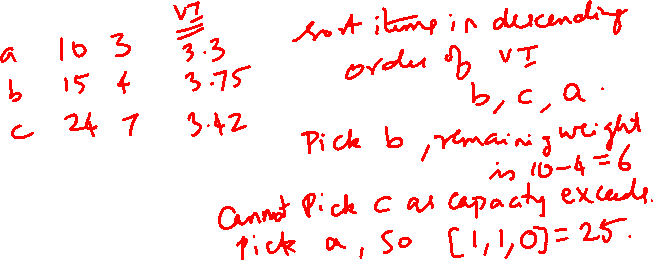 VI
a 10 3 3.3
b 15 4 3.75
c 24 7 3.42
Sort items in descending
order of VI
b, c, a.
Pick b, remaining weight
is 10-4=6
Cannot Pick c as capacity exceeds.
Pick a, So [1,1,0]=25.